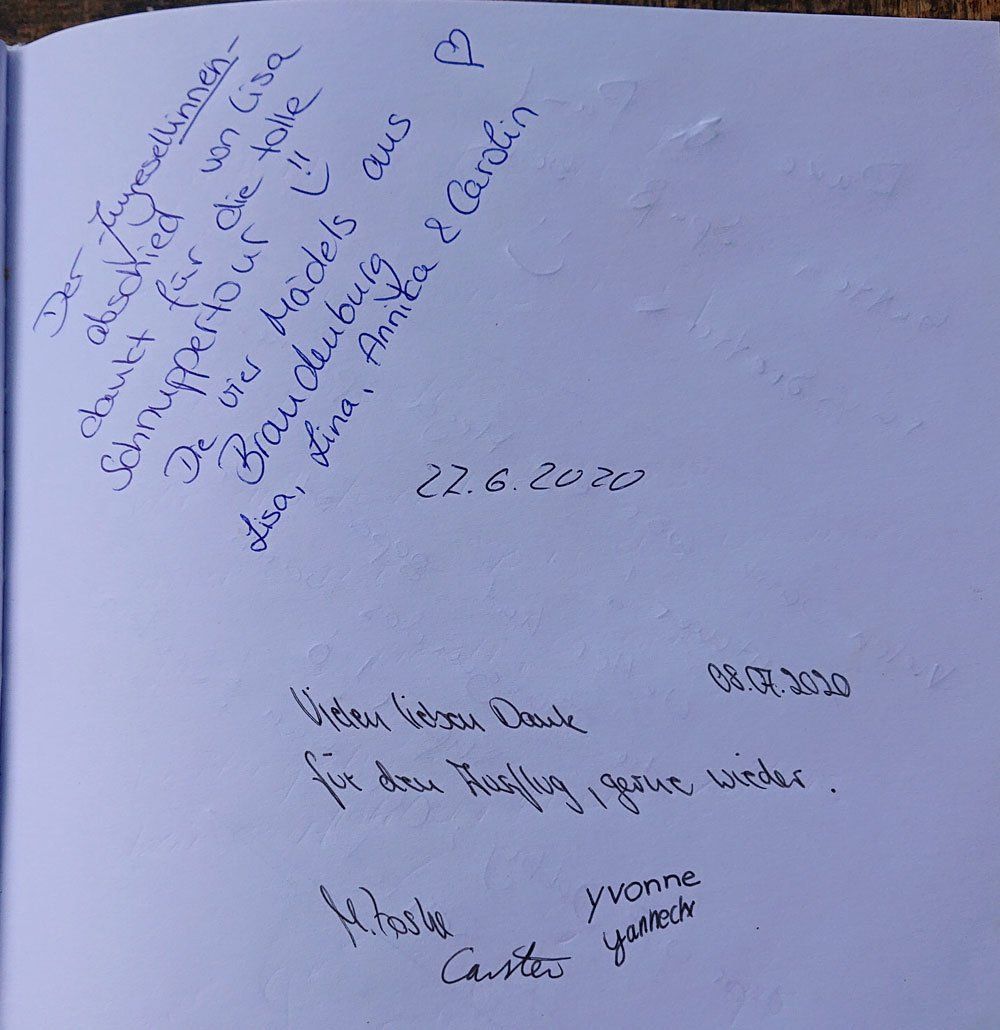 Der Jungesellinnen-
abschied von Lisa
dankt für die tolle
Schnuppertour !!
Die vier Mädels aus
Brandenburg
Lisa, Lina, Annika & Carolin
22.6.2020
08.07.2020
Vielen lieben Dank
für den Ausflug, gerne wieder.
Yvonne
Yanneck
Carsten